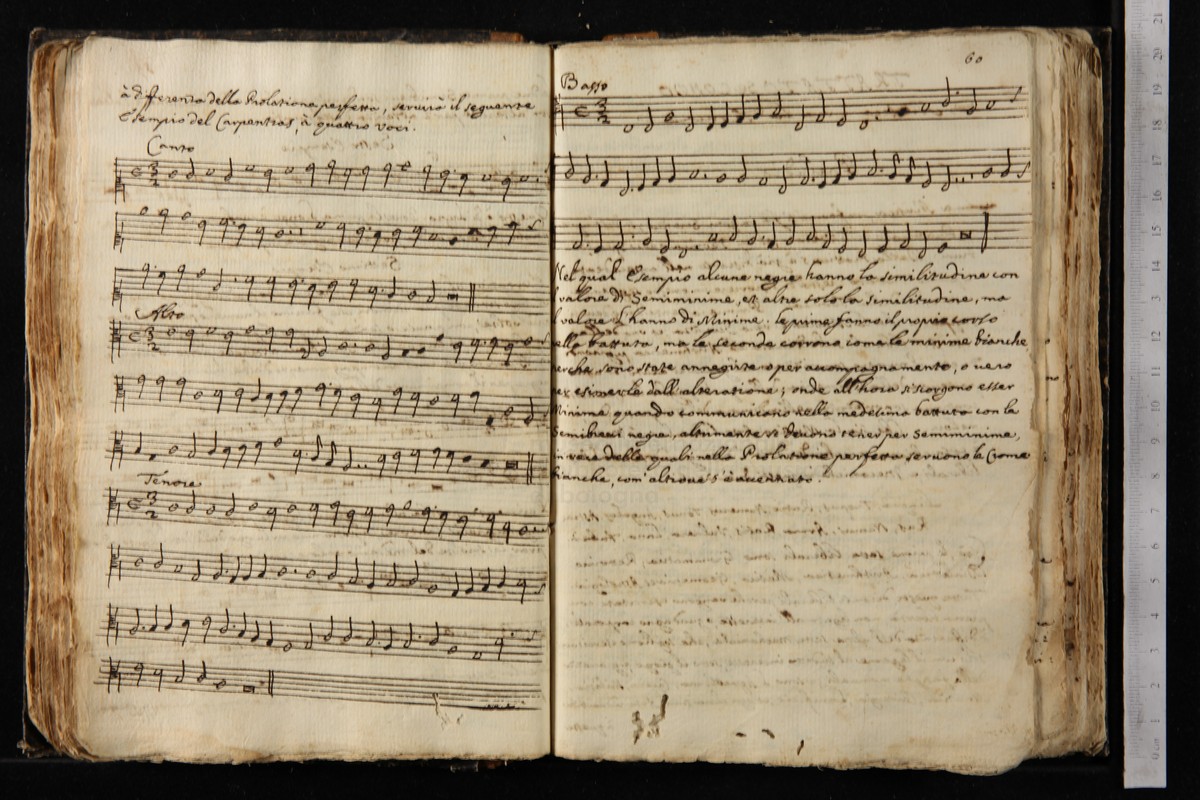 à differenza della Prolatione perfetta, servirà il seguente
Esempio del Carpentras, à quattro voci.
Canto
Alto
Tenore
60
Basso
Nel qual Esempio alcune negre hanno la similitudine con
valore di Semiminime, et altre solo la similitudine, ma
valore l'hanno di Minime. le prime fanno il proprio corso
ella battuta, ma le seconde corrono come le minime bianche
erche sono state annegrite o per accompagnamento, o vero
er esimerle dall'alteratione; onde all'hora si scorgono esser
Minime quando communicano nella medesima battuta con la
Semibrevi negra, altrimente si devono tener per Semiminime,
in vece delle quali nella Prolatione perfetta servono le Crome
bianche, com'altrove s'è accennato.